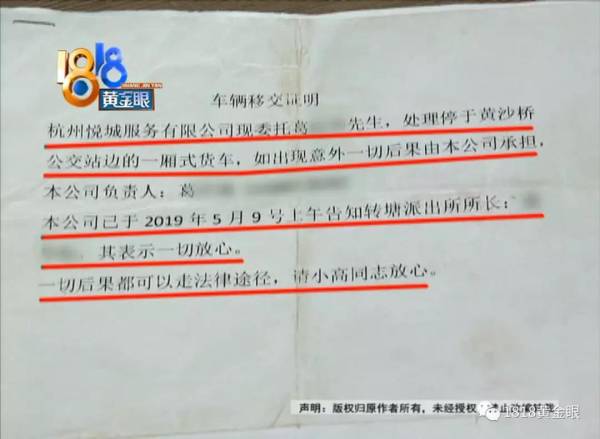 1818
HUANG JIN YAN
黄金眼
车辆移交证明
杭州悦城服务有限公司现委托葛 先生，处理停于黄沙桥
公交站边的一厢式货车，如出现意外一切后果由本公司承担，
本公司负责人：葛
本公司已于 2019 年 5 月 9 号上午告知转塘派出所所长：
，其表示一切放心。
一切后果都可以走法律途径，请小高同志放心。
声明：版权归原作者所有，未经授权
1818黄金眼